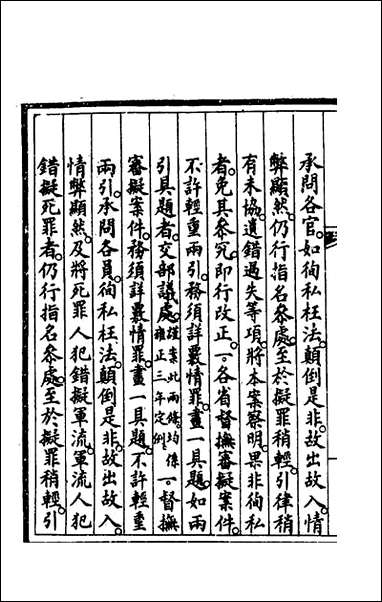 承問各官。如徇私枉法。顛倒是非。故出故入。情
弊顯然。仍行指名叅處。至於擬罪稍輕。引律稍
有未協。遺錯過失等項。將本案察明。果非徇私
者。免其叅究。即行改正。一。各省督撫審擬案件。
不許輕重兩引。務須詳覈情罪。畫一具題。如兩
引具題者。交部議處。謹案此兩條。均係雍正三年定例。一。督撫
審擬案件。務須詳覈情罪。畫一具題。不許輕重
兩引。承問各員。徇私枉法。顛倒是非。故出故入。
情弊顯然。及將死罪人犯錯擬軍流。軍流人犯
錯擬死罪者。仍行指名叅處。至於擬罪稍輕。引